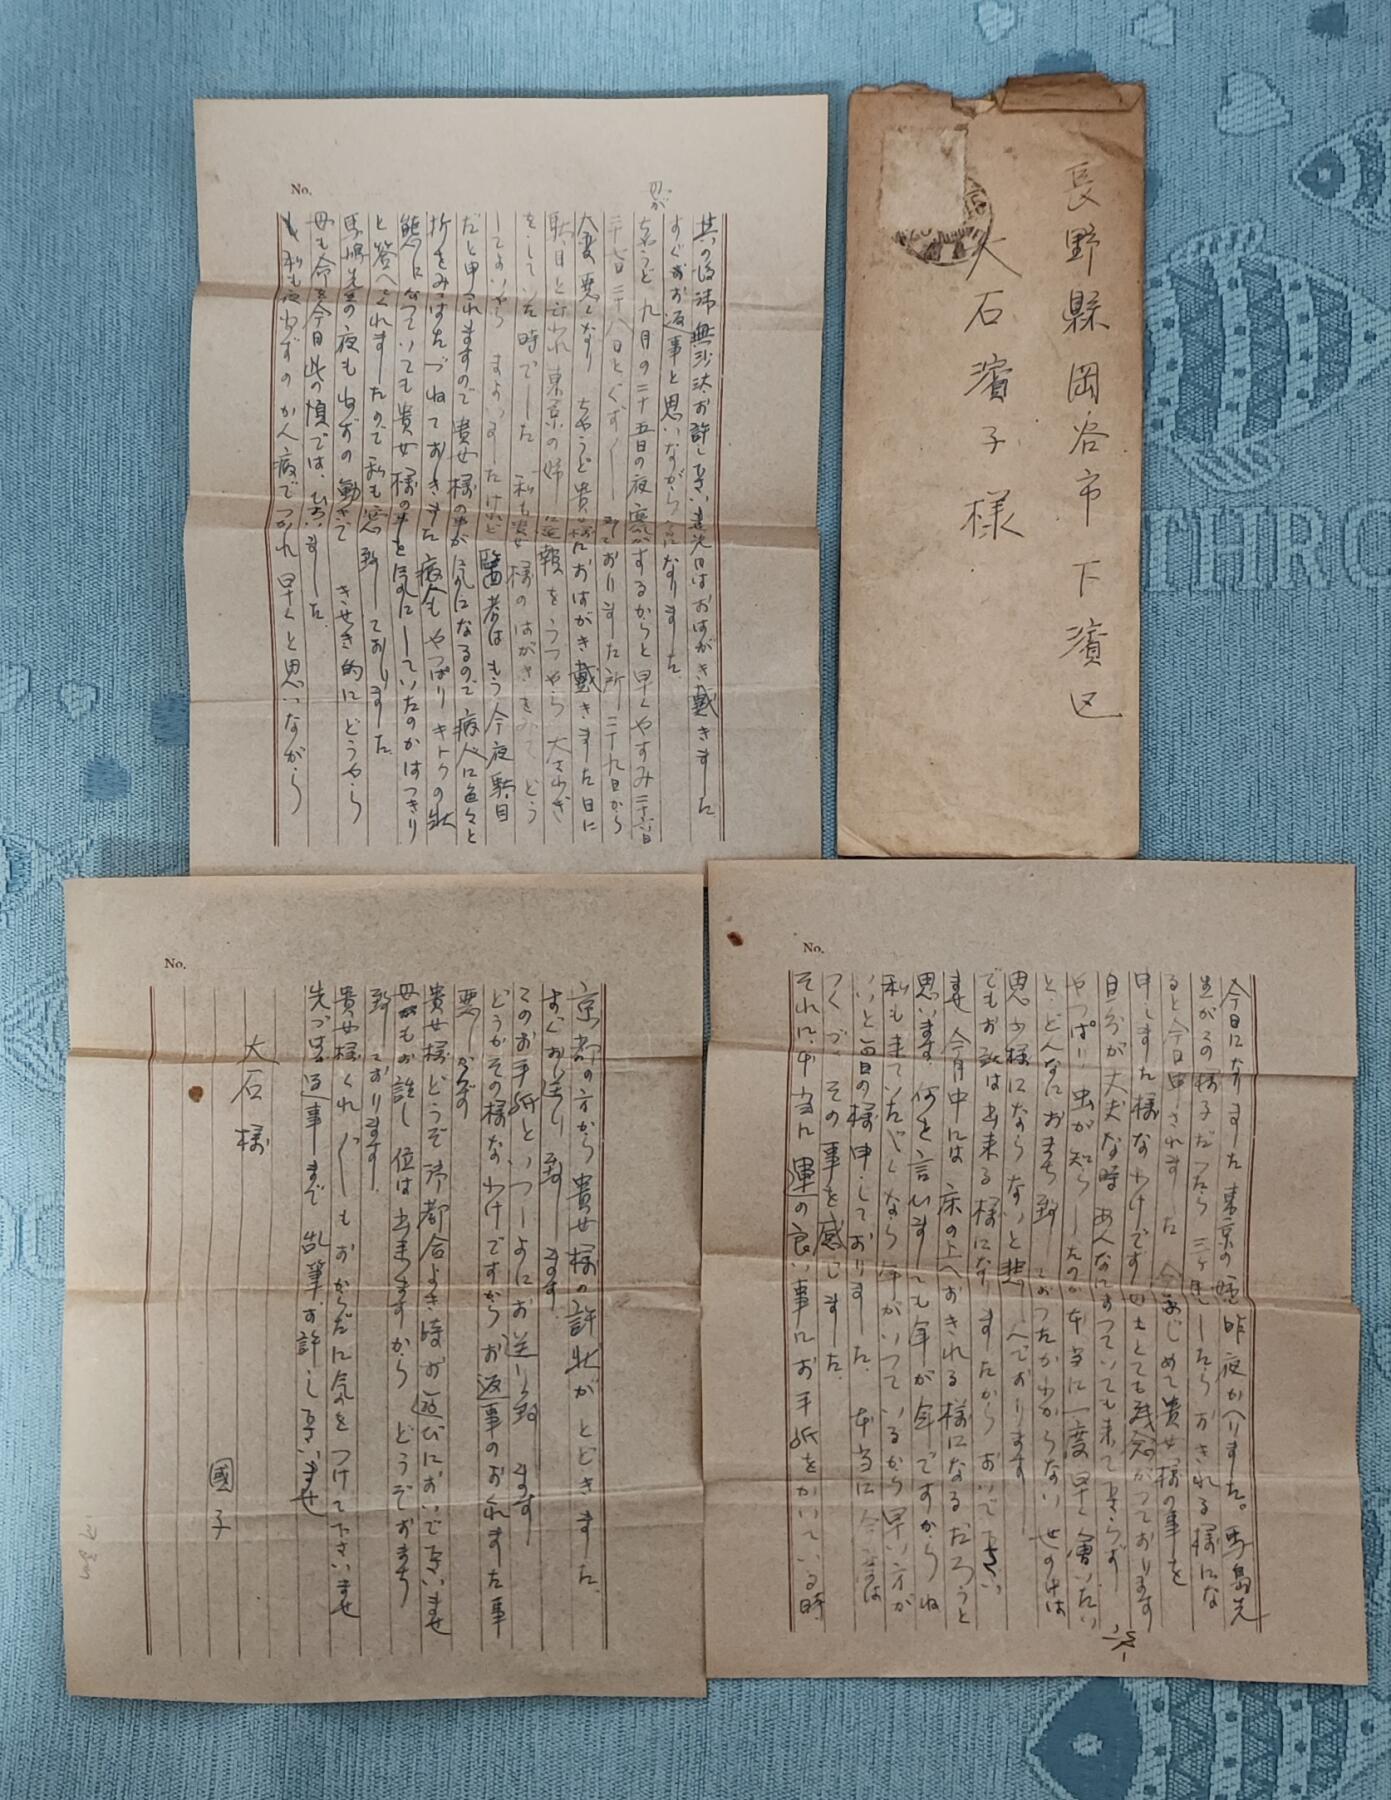 長野縣岡谷市下濱区
大石濱子様
No.
其の後御無沙汰お許し下さいませ先日はおはがき戴きました
すぐお返事と思いながら今になりました
ちょうど九月の二十五日の夜寒がするからと早くやすみ二十六日
二十七日二十八日とぐずぐずしておりました所二十九日から
全々悪くなり ちょうど貴女様におはがき戴きました日に
駄目と云われ東京の姉に電報をうつやら大さわぎ
をしていた時でした 私も貴女様のはがきをみてどう
してよいやら まよいましたけれど 醫者はもう今夜駄目
だと申されますので貴女様の事が気になるので病人に色々と
折をみはたづねておきました病人もやっぱりキトクの状
態になっていても貴女様の事を気にしていたのかはっきり
と答へてくれましたので私も安心致しておりました
馬島先生の夜もねずの働きで きせき的にどうやら
母も命を今日此の頃では、ひろいました。
私も夜ねずのかん病でつかれ早くと思いながら
No.
今日になりました東京の姉昨夜かへりました。馬島先
生がこの様子だったら 二ヶ月したらおきれる様にな
ると今日申されました 今あじめて貴女様の事を
申しました様なわけです 母もとても残念がっております
自分が大丈な時あんなにまっていても来て下さらず
やっぱり虫が知らしたのか本当に一度早く會いたい
と、どんなにおまち致しておったかわからない世の中は
思ふ様にならないと悲しんでおります
でもお話は出来る様になりましたからおいで下さい
ませ 今月中には床の上へおきれる様になるだろうと
思います 何を言いましても年が年ですからね
私も来ていたゞくなら年がいっているから早い方が
いいと毎日の様申しておりました 本当に今度は
つくづくその事を感じました
それに本当に運の良い事にお手紙をかいている時
No.
京都の方から貴女様の許状がとどきました
すぐお送り致します
このお手紙といっしょにお送り致します
どうかその様なわけですからお返事のおくれました事
悪しからず
貴女様どうぞ御都合よき時お遊びにおいで下さいませ
母からもお話し位は出来ますから どうぞおまち
致しております
貴女様くれぐれもおからだに気をつけて下さいませ
先づはお返事まで 乱筆お許し下さいませ
國子
大石様